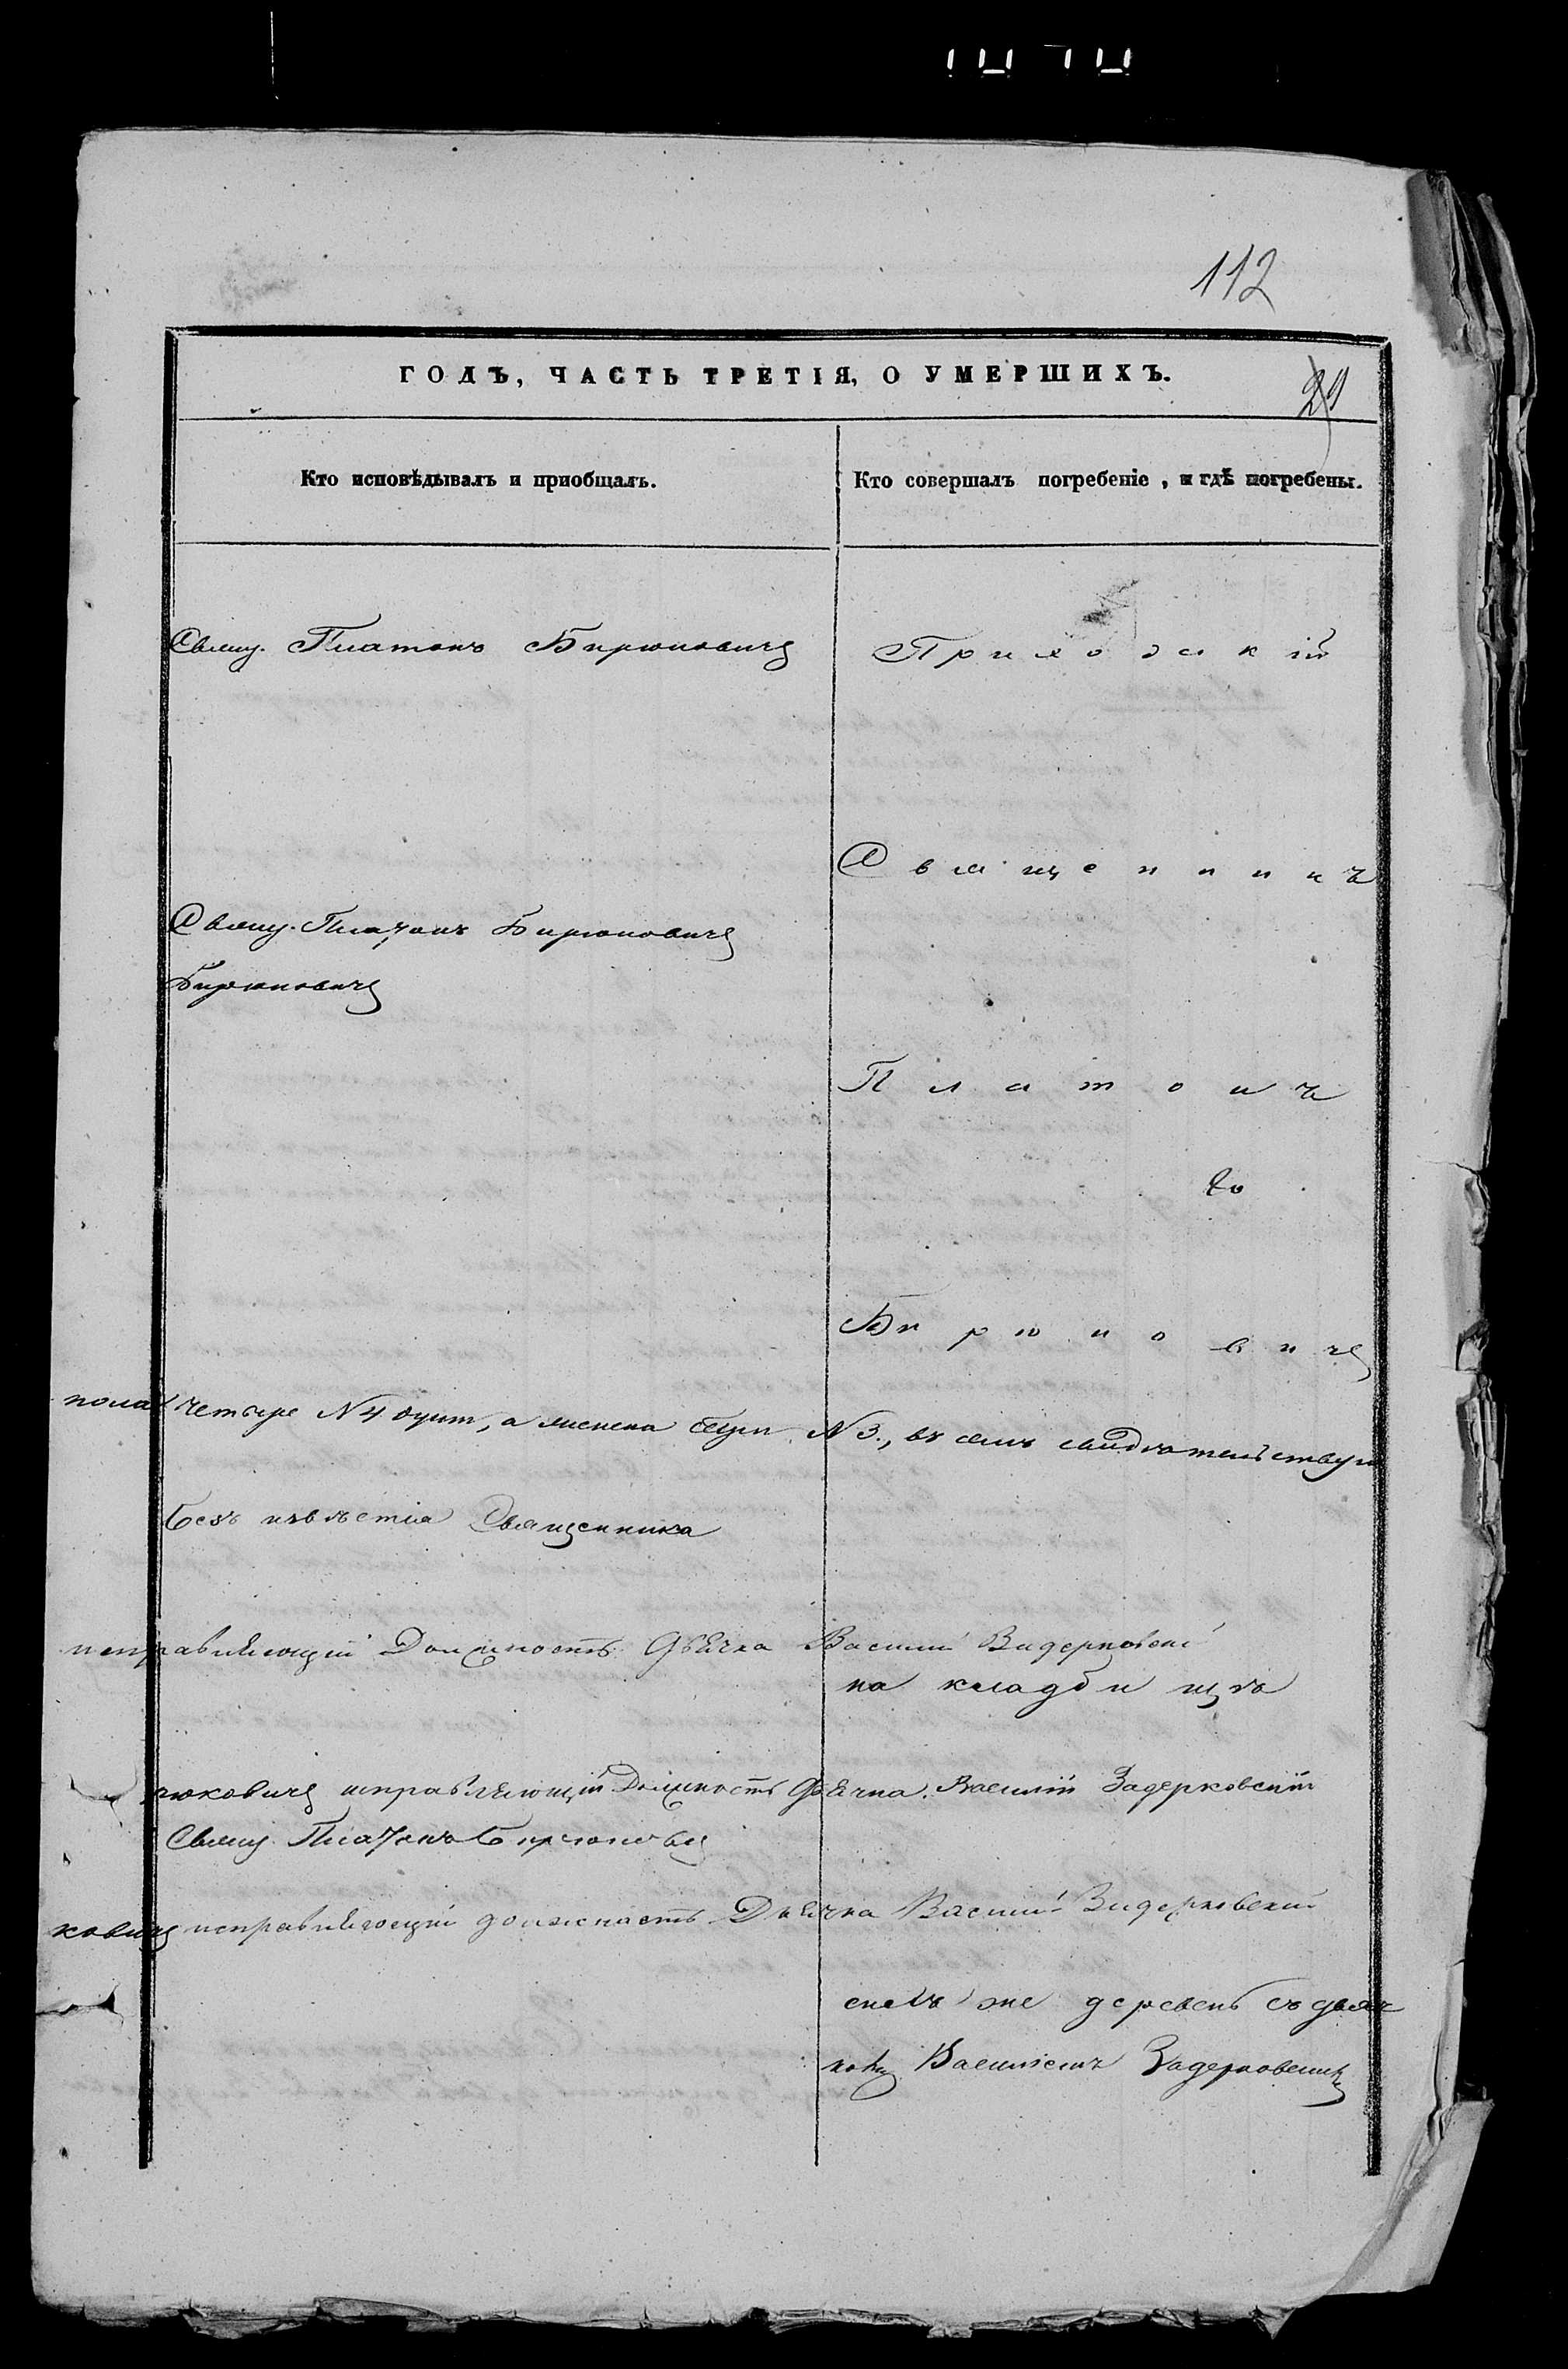 112
ГОДЪ, ЧАСТЬ ТРЕТІЯ, О УМЕРШИХЪ.
29
Кто исповѣдывалъ и приобщалъ.
Кто совершалъ погребеніе, и гдѣ погребены.
Свящ. Платонъ Бирюковичъ
Приходскій
Священникъ
Свящ. Платонъ Бирюковичъ
Бирюковичъ
Платонъ
Бирюковичъ
пола четыре N4 душъ, а женска N3., въ семъ свидѣтельствуемъ
Священника
исправляющій Должность Дьячка Василій Задерковскій
на кладбищѣ
рюковичъ исправляющій Должность Дьячка Василій Задерковскій
Свящ. Платонъ Бирюкович
ковичъ исправляющій должность Дьячка Василій Задерковскій
же деревень съ дьяч
комъ Василіемъ Задерковскимъ